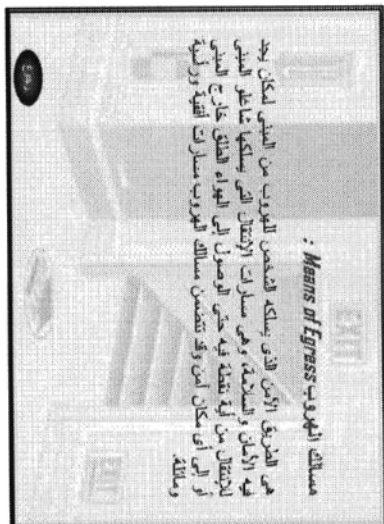 مسالك الهروب Means of Egress :
هى الطريق الآمن الذى يسلكه الشخص للهروب من المبنى لمكان يجد
فيه الأمان والسلامة، وهى مسارات الإنتقال التى يسلكها شاغلو المبنى
للإنتقال من أية نقطة فيه حتى الوصول إلى الهواء الطلق خارج المبنى
أو إلى أى مكان آمن وقد تتضمن مسالك الهروب مسارات أفقية ورأسية
ومائلة.
EXIT
EXIT